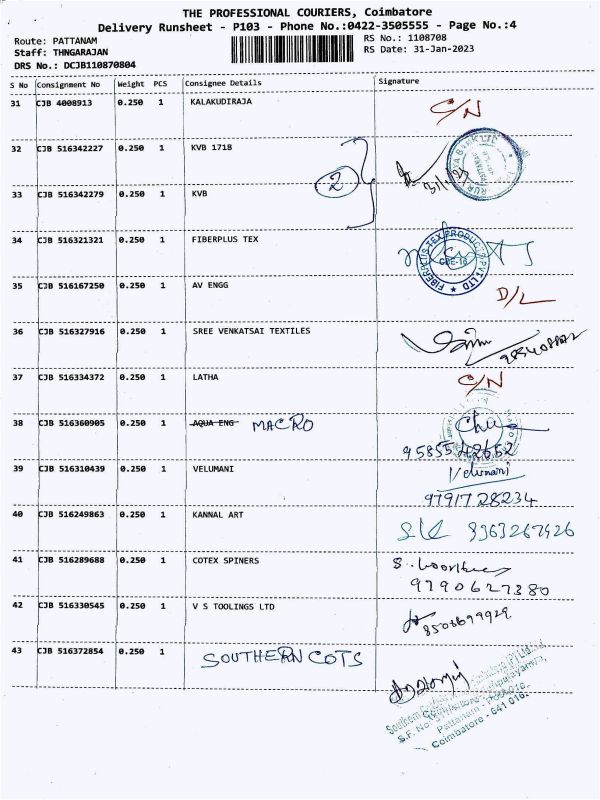 THE PROFESSIONAL COURIERS, Coimbatore
Delivery Runsheet - P103 - Phone No.:0422-3505555 - Page No.:4
Route: PATTANAM RS No.: 1108708
Staff: THNGARAJAN RS Date: 31-Jan-2023
DRS No.: DCJB110870804
S No Consignment No Weight PCS Consignee Details Signature
31 CJB 4008913 0.250 1 KALAKUDIRAJA C/N
32 CJB 516342227 0.250 1 KVB 1718
2
33 CJB 516342279 0.250 1 KVB
34 CJB 516321321 0.250 1 FIBERPLUS TEX
FIBERPLUS TEX PRODUCER PVT LTD
CBE-16
35 CJB 516167250 0.250 1 AV ENGG D/L
36 CJB 516327916 0.250 1 SREE VENKATSAI TEXTILES
37 CJB 516334372 0.250 1 LATHA C/N
38 CJB 516360905 0.250 1 AQUA ENG MACRO
9585542652
39 CJB 516310439 0.250 1 VELUMANI Velumani
9791728234
40 CJB 516249863 0.250 1 KANNAL ART 9363267426
41 CJB 516289688 0.250 1 COTEX SPINERS
9790627380
42 CJB 516330545 0.250 1 V S TOOLINGS LTD
43 CJB 516372854 0.250 1 SOUTHERN COTS
Southern
S.F. No
Pattanam
Coimbatore - 641 016.